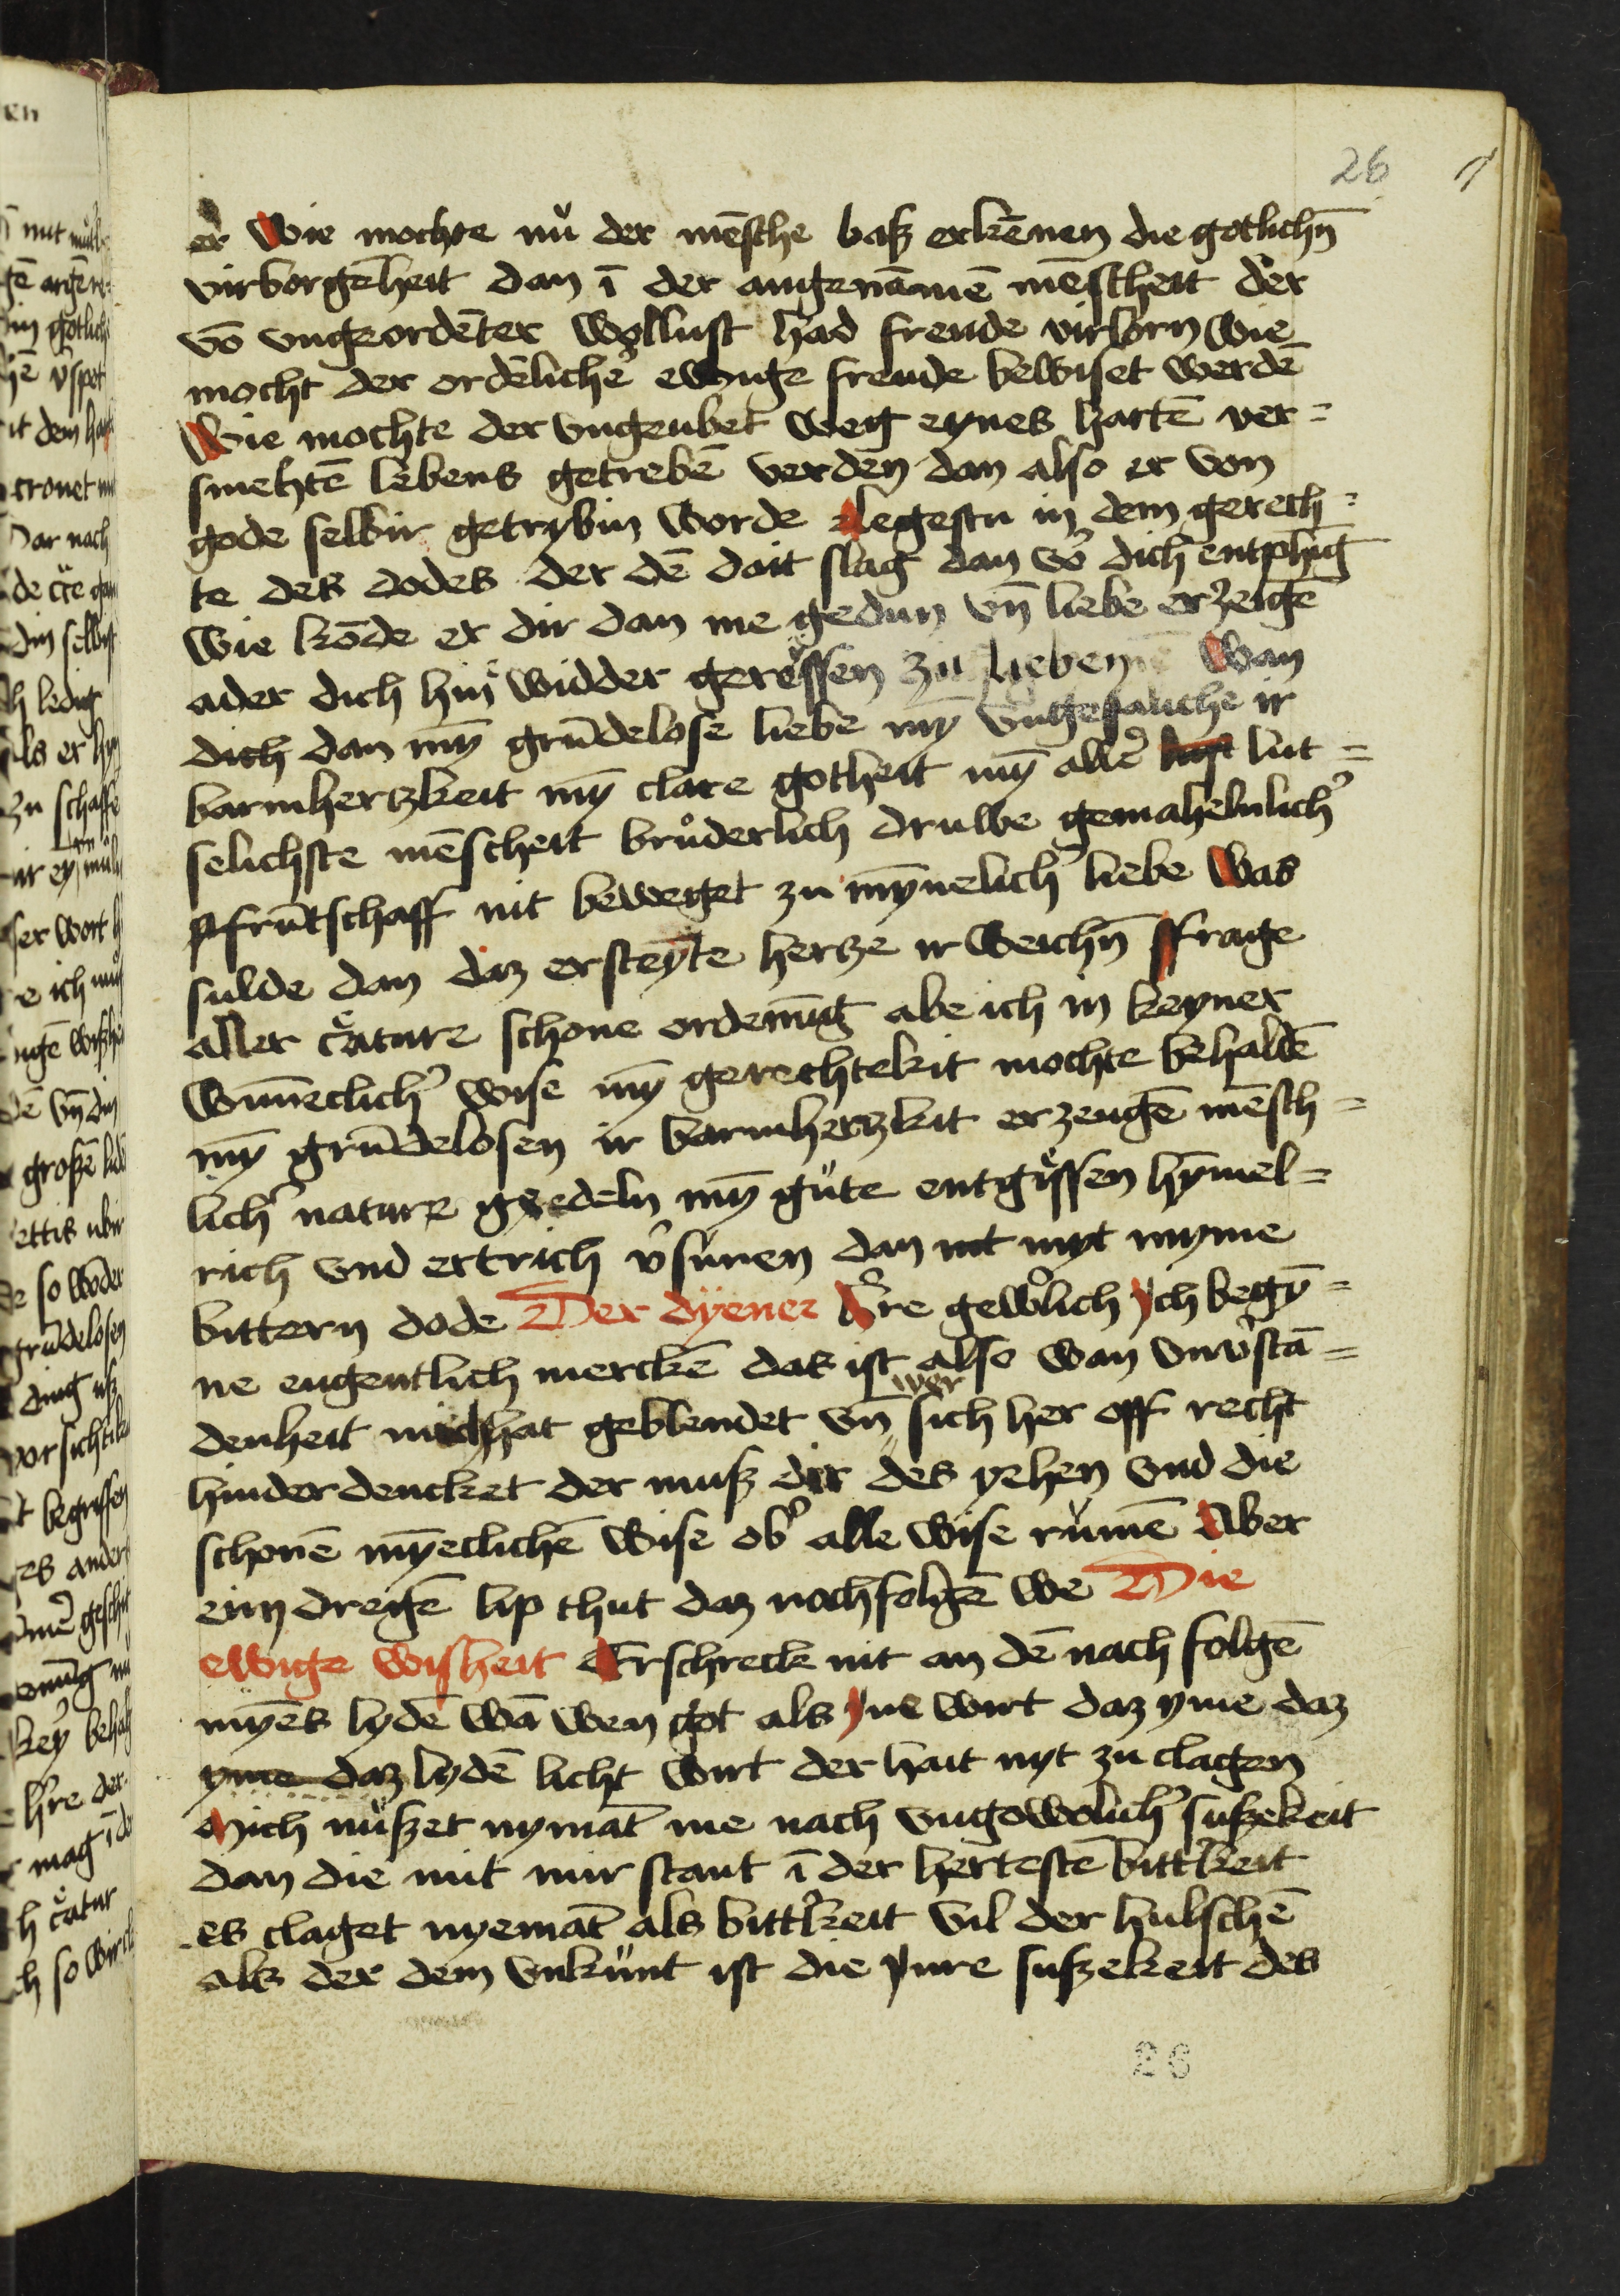 26
er Wie mochte nů der mēsche baß erkēnen die gotlichn̄
virborgēheit dan ī der angenāmē mēscheit der
vō vngeordēter wollust had freude virlorn wie
mocht der ordēlichē ewige freude bewiset werdē
Wie mochte der vngeubet weg eynes hartē ver=
smehtē lebens getrebē verden dan also er von
gode selbir getrybin worde Legestu in dem gerech=
te des dodes der dē doit slag dan vo᷎ dich entphīg
Wie kōde er dir dan me gedun vn̄ liebe erzeigē
ader dich hin widder geressen zu lieben Wan
dich dan my̅ grūdelose liebe my̅
barmhertzkeit my̅ clare gotheit my̅ alle᷎ lut=
selichste mēscheit brůderlich druwe gemahelnlich᷎
frūtschaff nit beweget zu my̅nelich᷎ liebe Was
sulde dan daz ersteyte hertze ir weichn̄ ffrage
aller c᷎ature schone ordenūg abe ich in keyner
wūneclich᷎ wise my̅ gerechtekit mochte behaldē
my̅ grūdelosen ir barmhertzkit erzeugē mēsch=
lich᷎ nature geedeln my̅ gůte entgissen hy̅mel=
rich vnd ertrich v᷎sunen dan mit myt myme
bittern dode Der dyener H᷎re gewo᷎lich ych begy̅=
ne eugentlich merckē das ist also wan vnv᷎stā=
denheit mich hat geblendet vn̄ wer sich her off recht
hinder dencket der muß dir des yehen vnd die
schonē my̅eclichē wise ob᷎ alle wise růmē Aber
eim dregē lip thut daz nochfolgē we Die
ewige wisheit Erschreck nit an dē nach folgē
myēs lydē wā wen got als yne wirt daz yme daz
yme daz lydē licht wirt der hait nyt zu clagen
Mich nůßet nymāt me nach vngewolich᷎ sußekeit
dan die mit mir stant ī der hertestē bitt᷎keit
es claget nyemāt als bitt᷎keit vil der hulschē
als der dem vnkunt ist die ynre sußekeit des
26